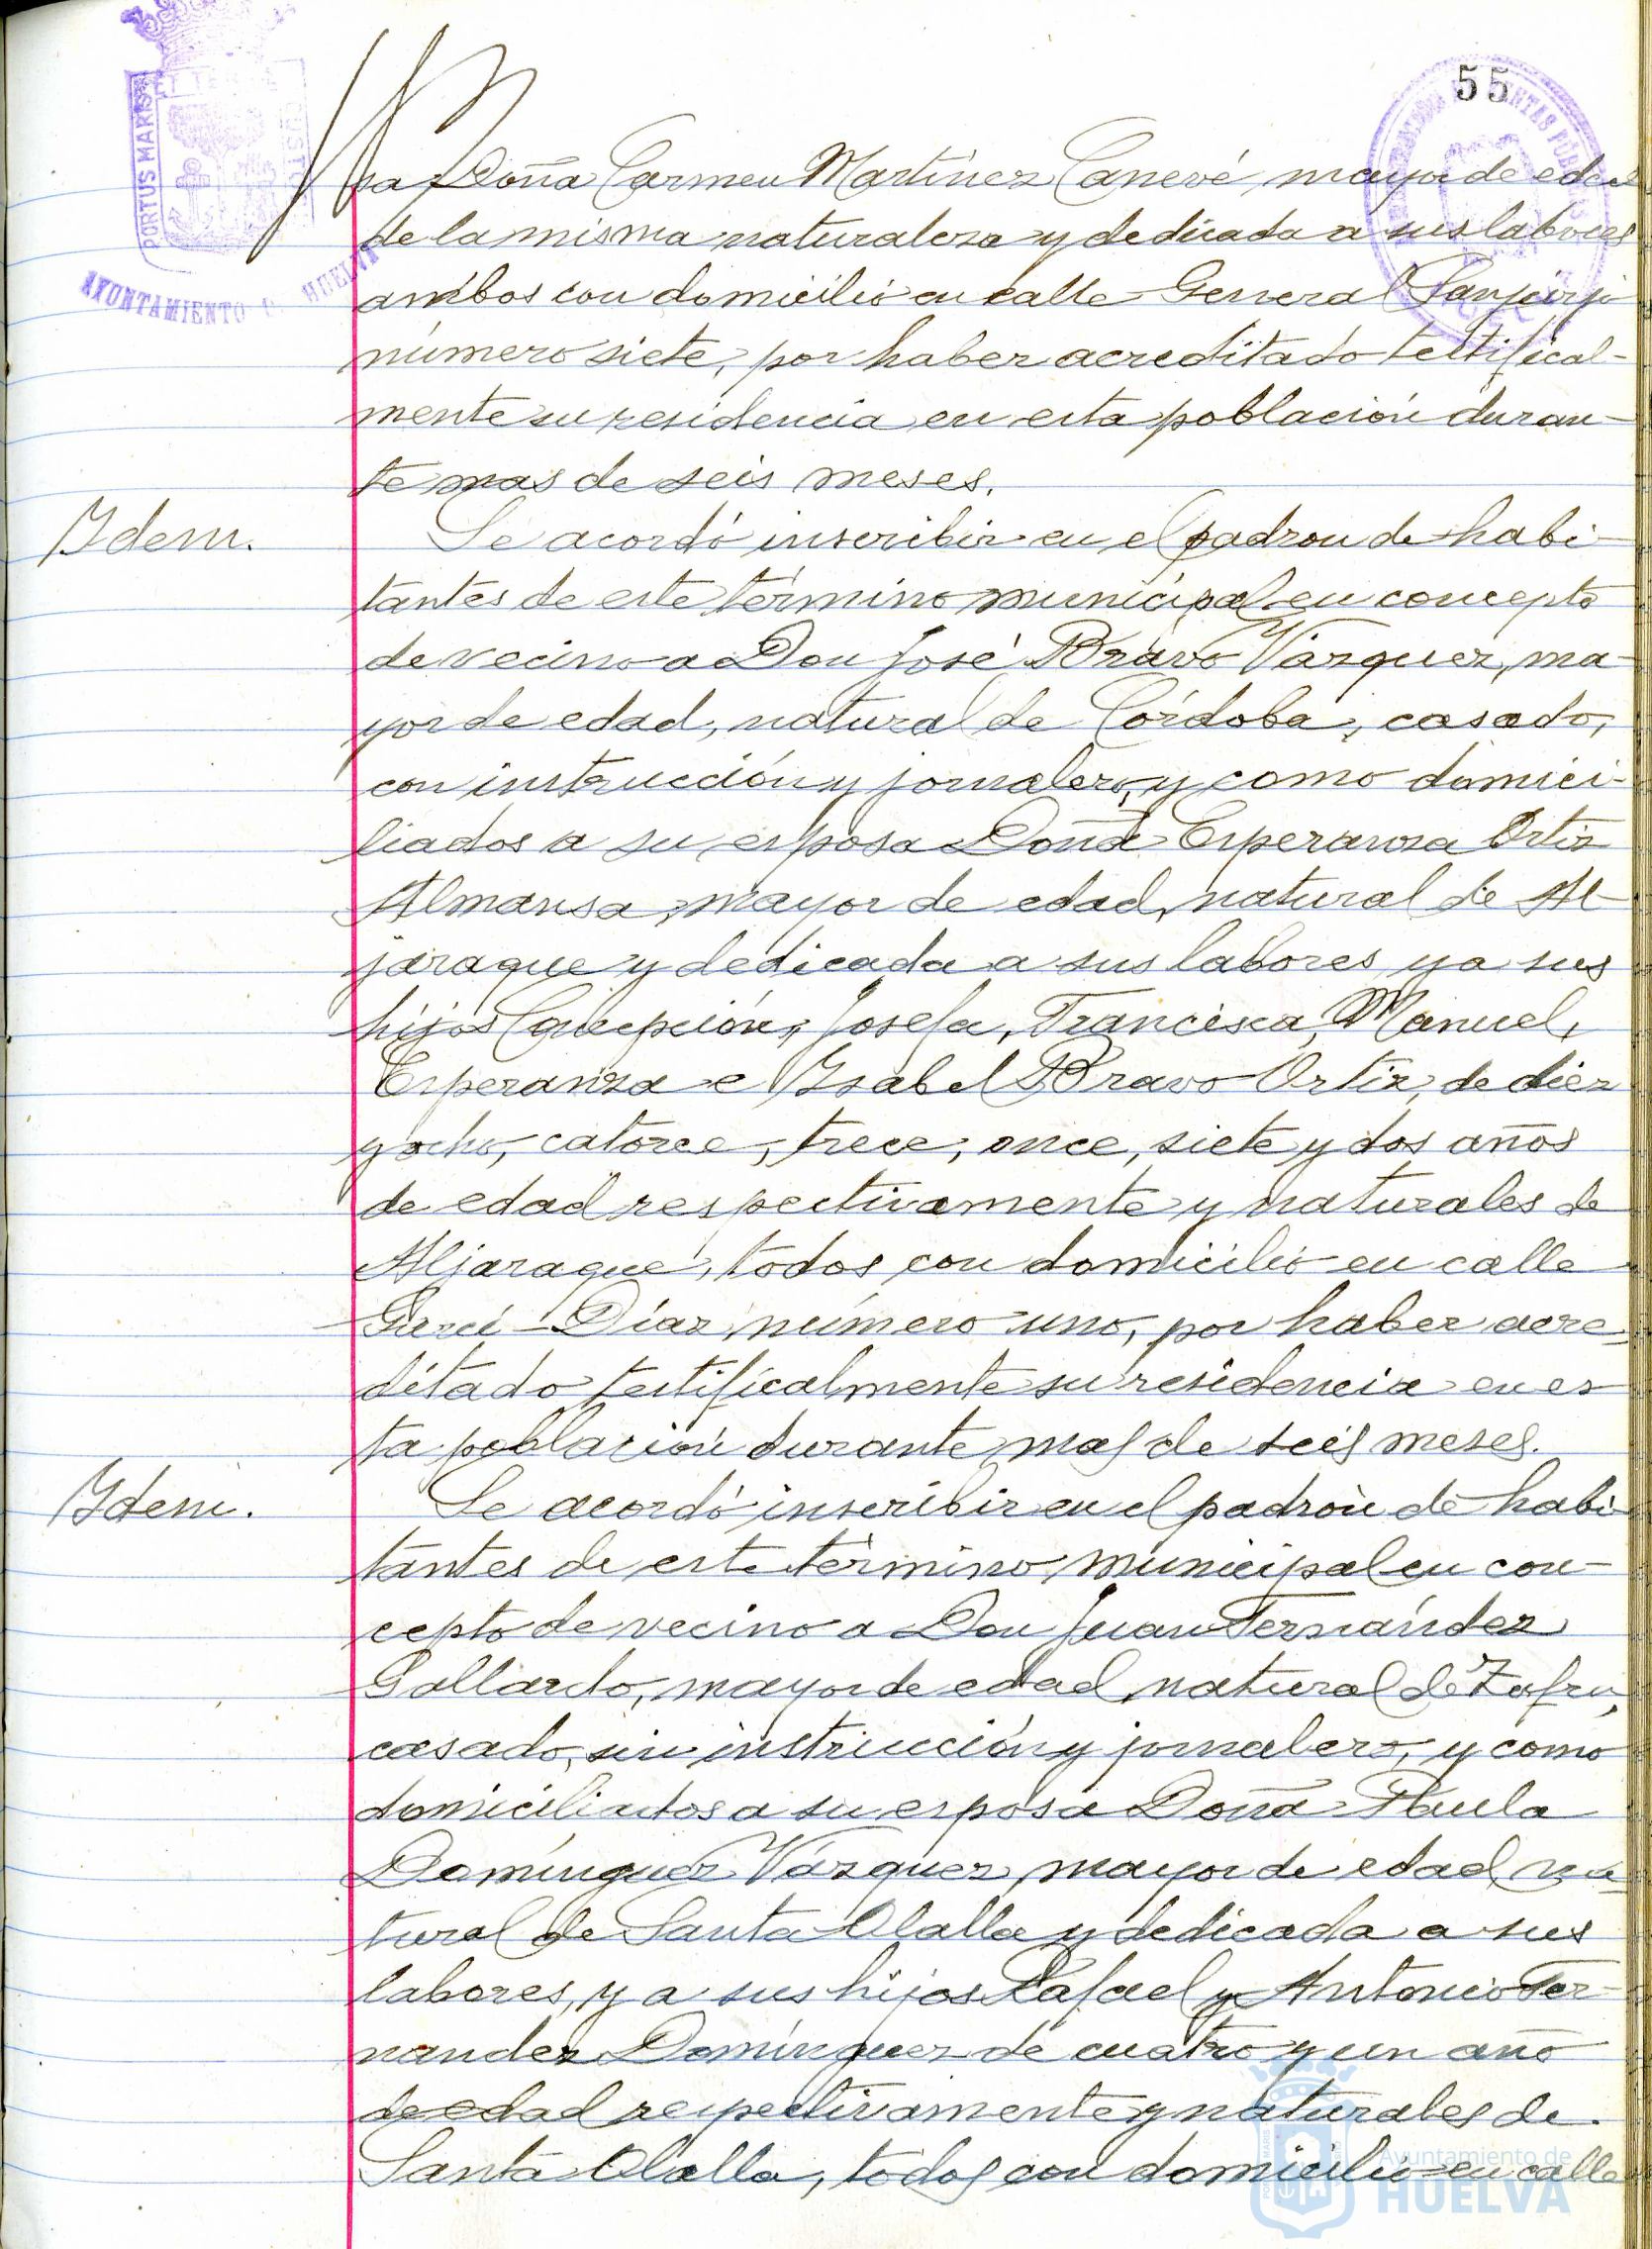 55
PORTUS MARIS
AYUNTAMIENTO HUELVA
sa Doña Carmen Martínez Canevé, mayor de edad
de la misma naturaleza y dedicada a sus labores
ambos con domicilio en calle General Sanjurjo
número siete, por haber acreditado testifical-
mente su residencia en esta población duran-
te mas de seis meses.
Ydem.
Se acordó inscribir en el padron de habi-
tantes de este término municipal en concepto
de vecino a Don José Bravo Vázquez, ma-
yor de edad, natural de Córdoba, casado,
con instrucción y jornalero, y como domici-
liados a su esposa Doña Esperanza Ortiz
Almansa, mayor de edad, natural de Al-
jaraque y dedicada a sus labores y a sus
hijos Concepción, Josefa, Francisca, Manuel,
Esperanza e Ysabel Bravo Ortiz, de diez
y ocho, catorce, trece, once, siete y dos años
de edad respectivamente y naturales de
Aljaraque, todos con domicilio en calle
Garci-Díaz número uno, por haber acre-
ditado testificalmente su residencia en es
ta población durante mas de seis meses.
Ydem.
Se acordó inscribir en el padrón de habi-
tantes de este término municipal en con-
cepto de vecino a Don Juan Fernández
Gallardo, mayor de edad, natural de Zafra,
casado, sin instrucción y jornalero, y como
domiciliados a su esposa Doña Paula
Domínguez Vázquez, mayor de edad, na-
tural de Santa Olalla y dedicada a sus
labores, y a sus hijos Rafael y Antonio Fer-
nandez Domínguez de cuatro y un año
de edad respectivamente y naturales de
Santa Olalla, todos con domicilio en calle
Ayuntamiento de
HUELVA